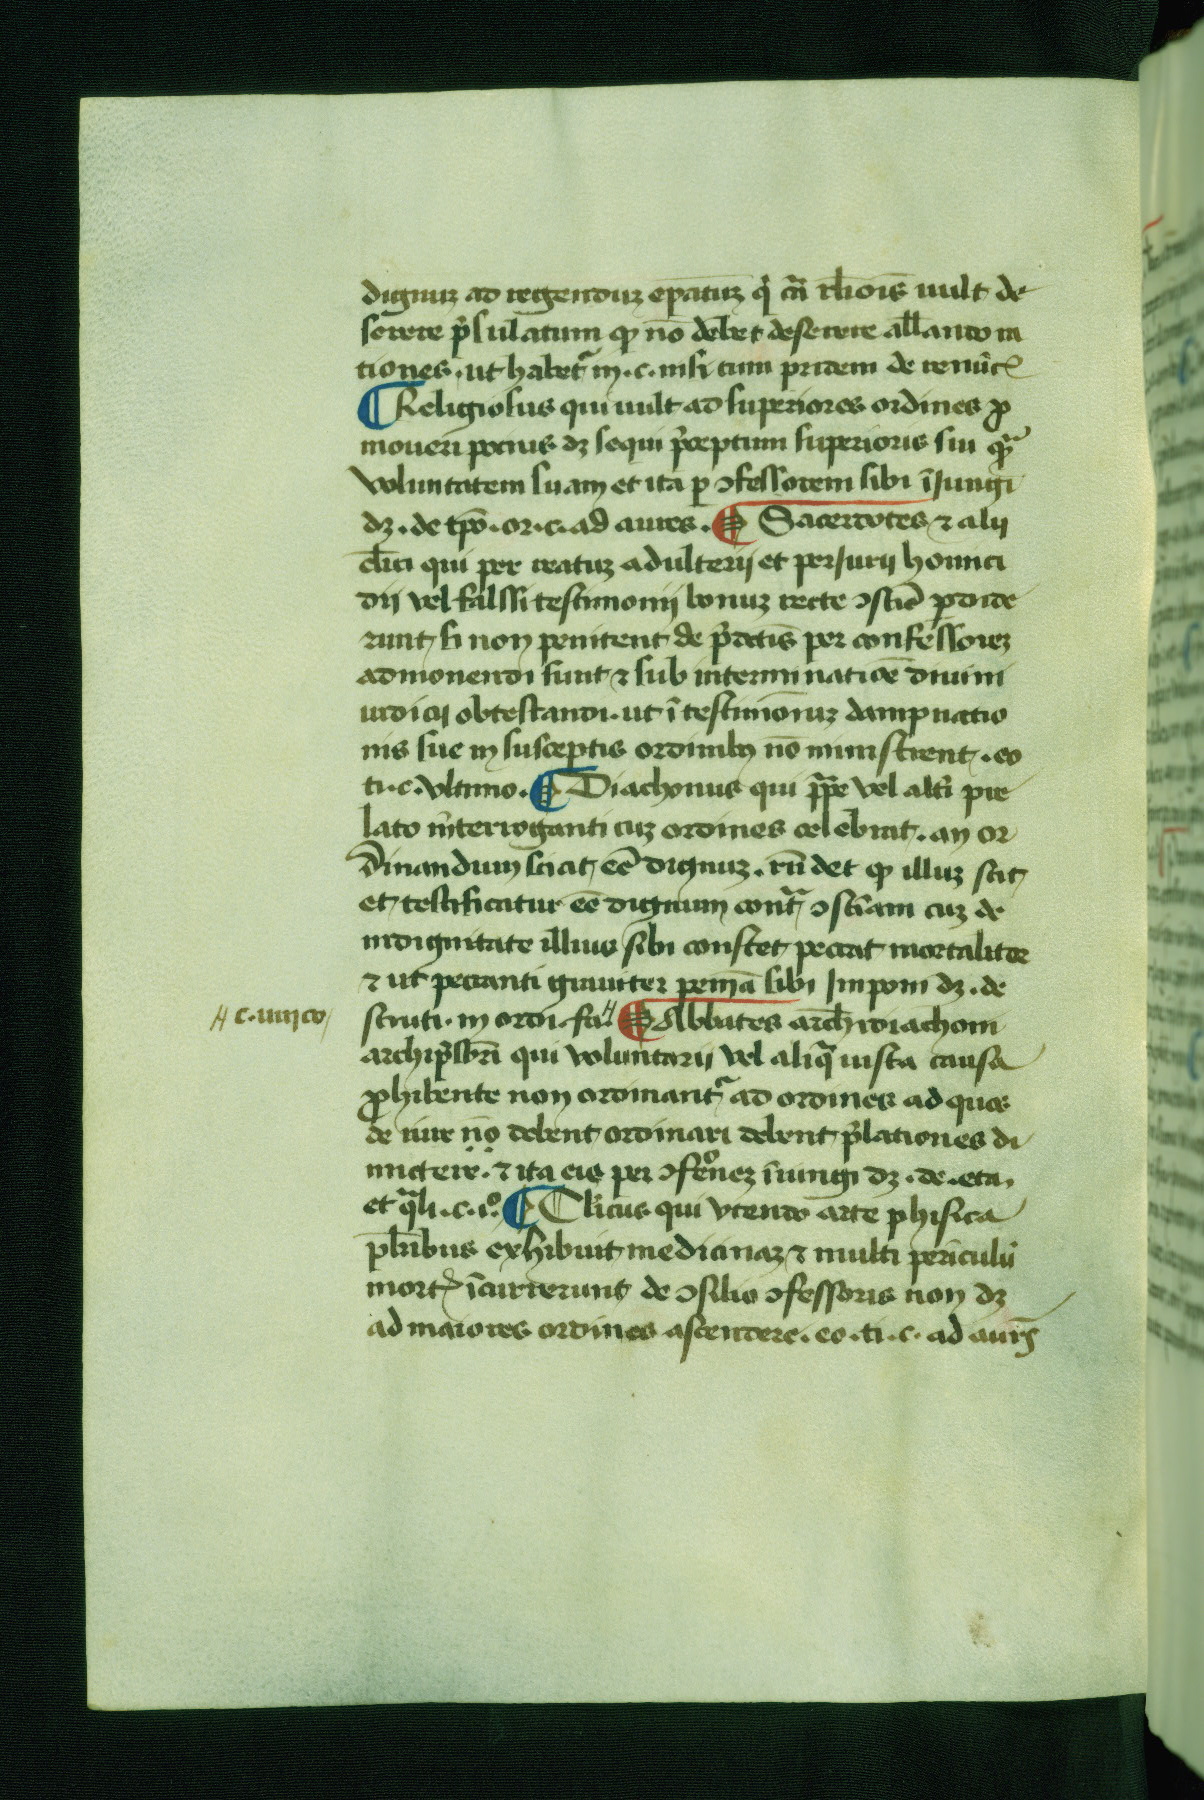 dignuz ad regenduz ep̄atuz q̇ cā rl̄iois uult de
serere p̄sulatum qꝫ nō debet deserere all̄anto ta
tiones . ut habet᷑ in . c . nisi cum pridem de renūc̄
¶ Religiosus qui uult ad superiores ordines ꝓ
moueri pocius dꝫ sequi p̄ceptum superioris sui qᷓꝫ
voluntatem suam et ita p ꝯfessorem sibi īiungi
dꝫ . de tp̄o . or . c . ad aures . ¶ Sacerdotes ⁊ alij
cl̄ici qui per reatuz adulterij et periurij homici
dij vel falssi testimonij bonuz recte ꝯsciē pdide
runt si non penitent de p̄dictis per confessorez
admonendi sunt ⁊ sub interminatioē diuini
iudicij obtestandi . ut ī testimoniuz dampnatio
nis sue in susceptis ordinibꝫ nō ministrent . eo
ti . c . vltimo . ¶ Diachonus qui pp̄e vel alt̄i pre
lato īnterroganti cuz ordines celebrat . an or
dinandum sciat eē dignuz . rn̄det qꝫ illuz scit
et testificatur eē dignum contᷓ ꝯsciam cuz de
indignitate illius sibi constet peccat mortaliter
⁊ ut peccanti grauiter penīa sibi Imponi dꝫ . de
scruti . in ordi . fa . ¶ Abbates archidiachoni
archip̄sbrī qui voluntarij vel aliqᷓ iusta causa
ꝓhibente non ordinant᷑ ad ordines ad quos
de iure nō debent ordinari debent p̄lationes di
mictere . ⁊ ita eis per ꝯfeᷤorez īiungi dꝫ . de . eta .
et qᷓli . c . i.º ¶ Cl̄icus qui vtendo arte phisica
pl̄ribus exhibuit medicinaz ⁊ multi periculū
mort̄ īcurrerunt de ꝯsilio ꝯfessoris non dꝫ
ad maiores ordines ascendere . eo . ti . c . ad aurs̄
c . unico